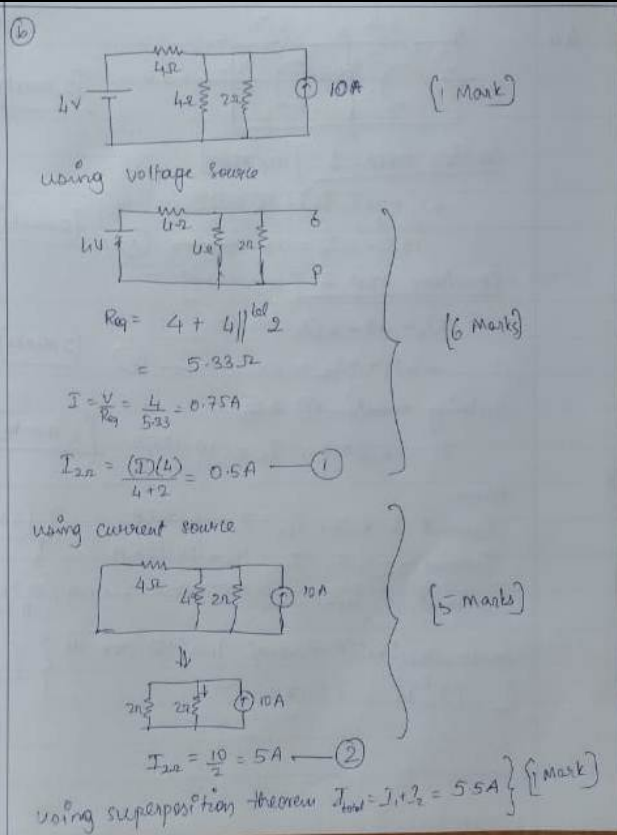 (b)
4Ω
4V
4Ω
2Ω
10A
[1 Mark]
using voltage source
4Ω
4V
4Ω
2Ω
[6 Marks]
Req = 4 + 4||lel 2
= 5.33Ω
I = V/Req = 4/5.33 = 0.75A
I2Ω = (I)(4)/4+2 = 0.5A — ①
using current source
4Ω
4Ω
2Ω
10A
[5 marks]
⇓
2Ω
2Ω
10A
I2Ω = 10/2 = 5A — ②
using superposition theorem Itotal = I1+I2 = 5.5A } [1 mark]